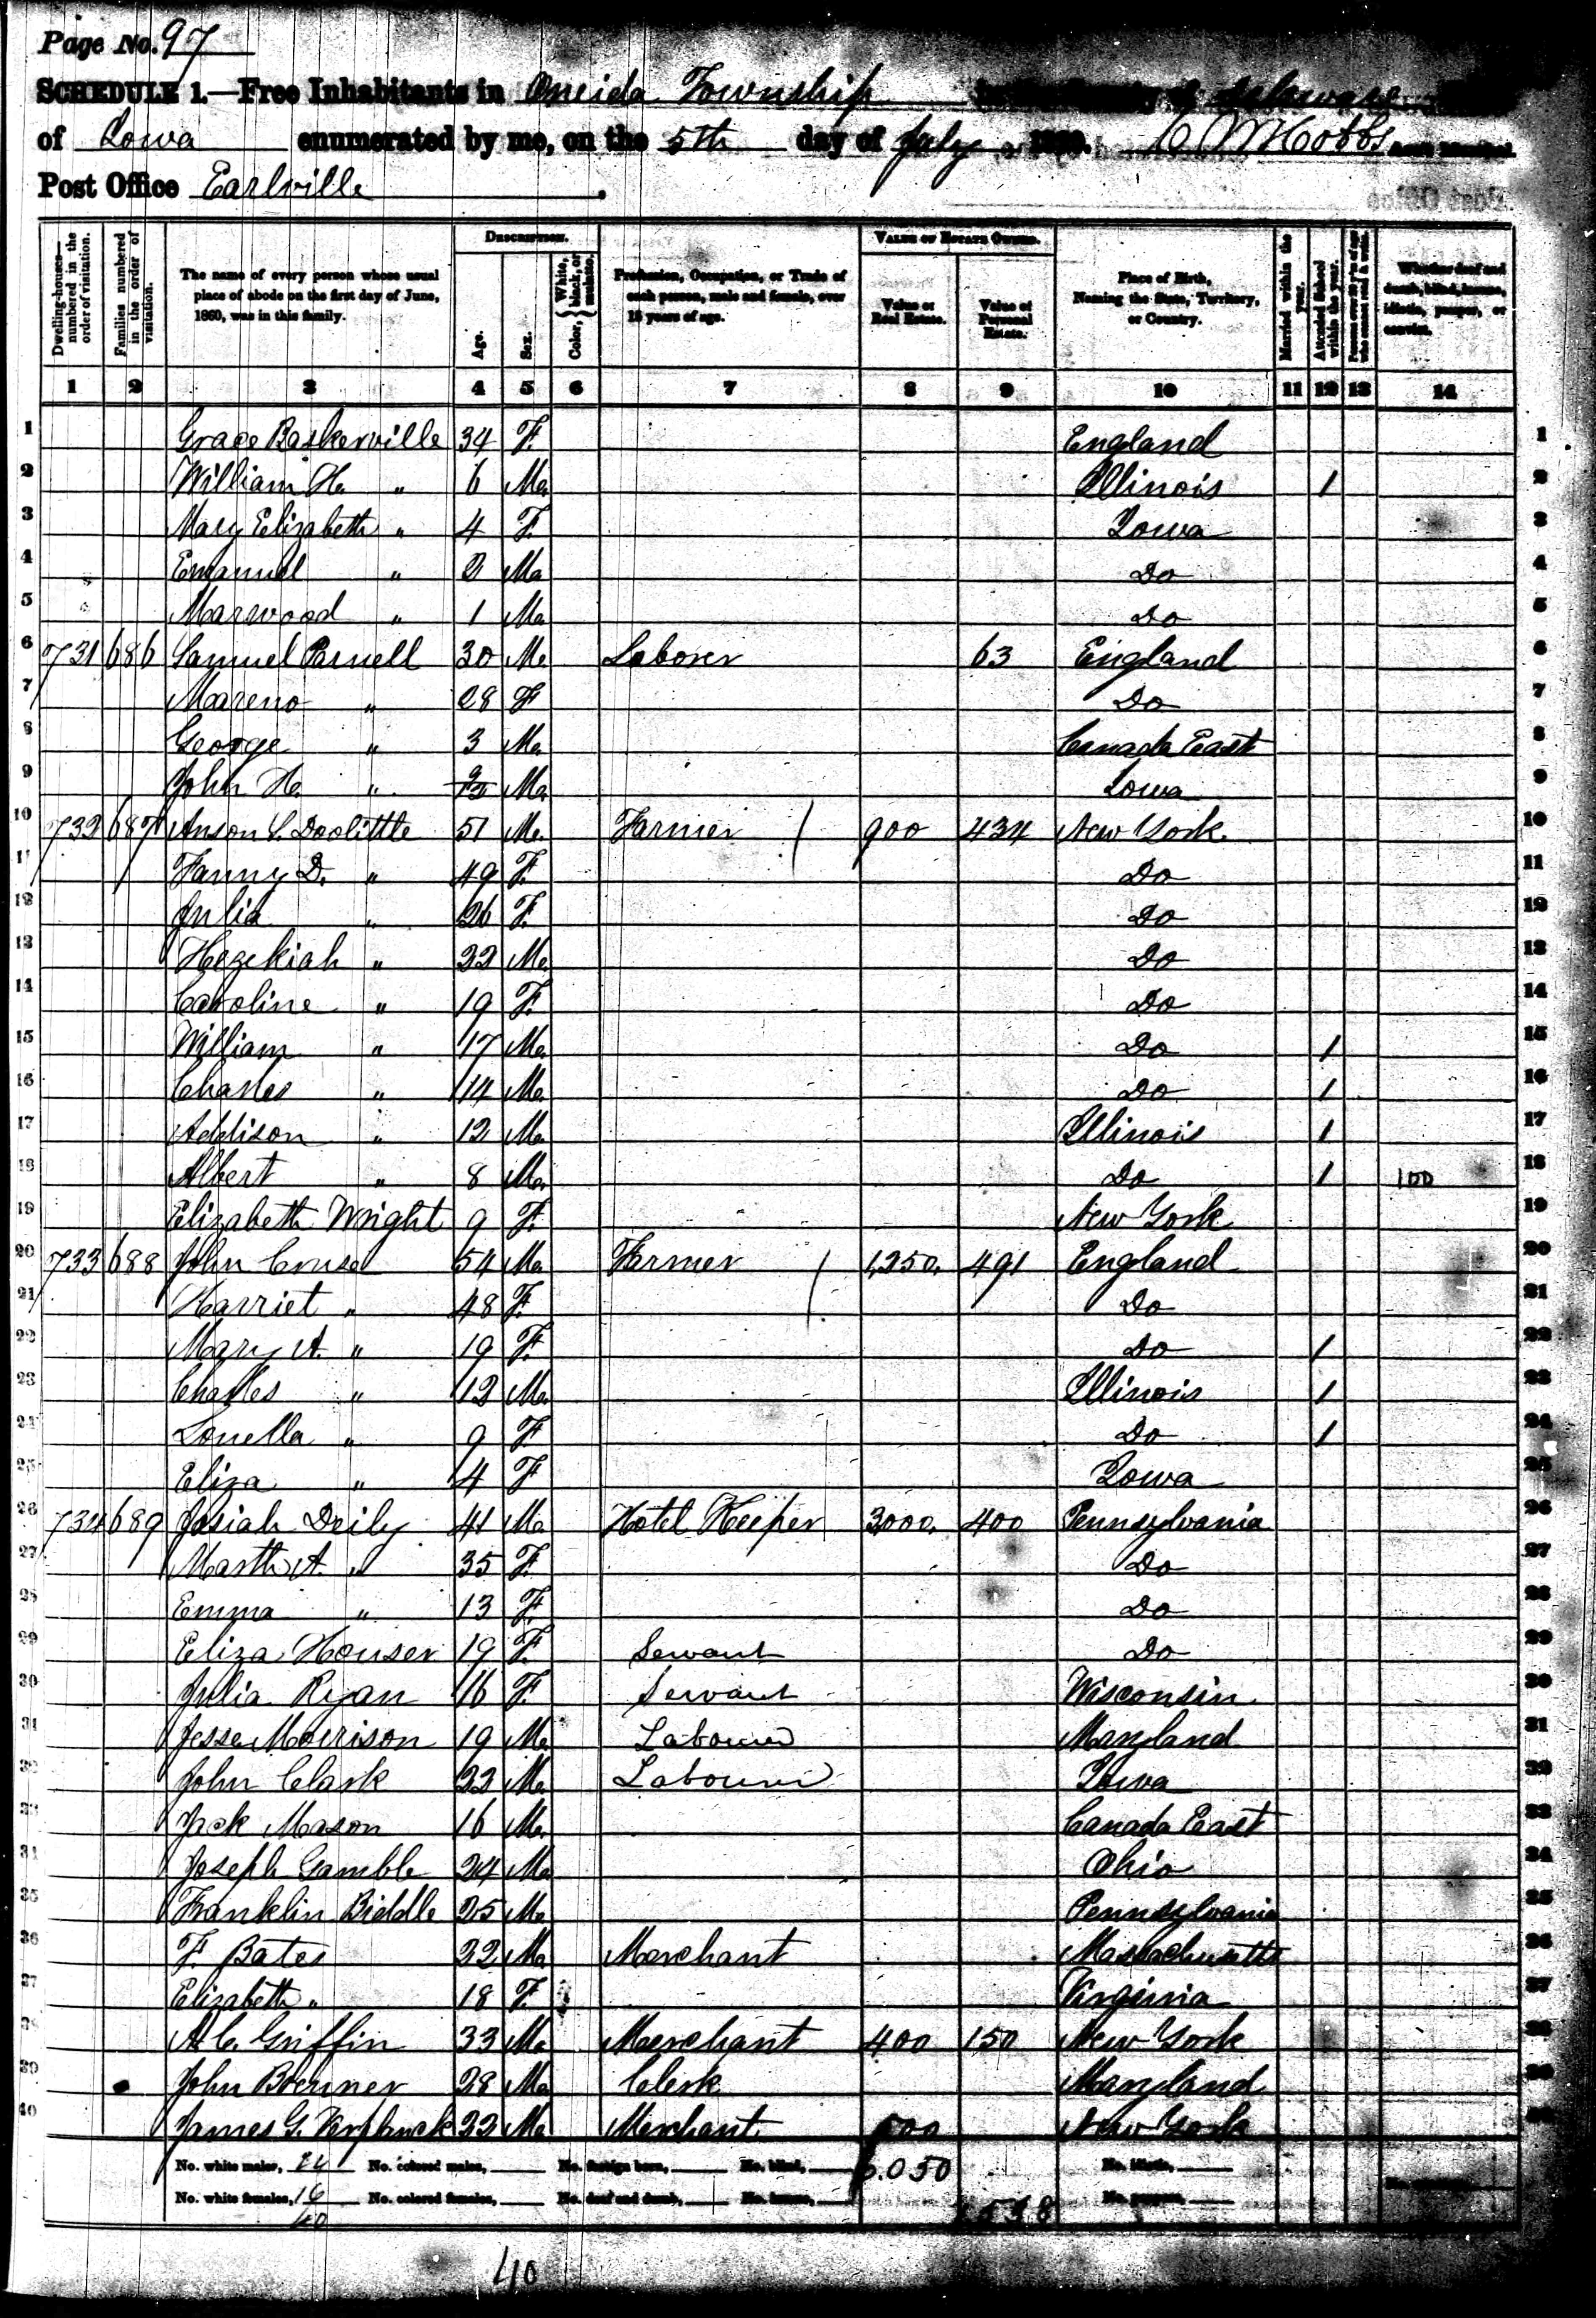 Page No. 97
SCHEDULE 1.—Free Inhabitants in Oneida Township in the County of Delaware
of Iowa enumerated by me, on the 5th day of July 1860. C M Hobbs
Post Office Earlville
Dwelling-houses—numbered in the order of visitation.
Families numbered in the order of visitation.
The name of every person whose usual place of abode on the first day of June, 1860, was in this family.
DESCRIPTION.
Age.
Sex.
Color, White, black, or mulatto.
Profession, Occupation, or Trade of each person, male and female, over 15 years of age.
VALUE OF ESTATE OWNED.
Value of Real Estate.
Value of Personal Estate.
Place of Birth, Naming the State, Territory, or Country.
Married within the year.
Attended School within the year.
Persons over 20 y'rs of age who cannot read & write.
Whether deaf and dumb, blind, insane, idiotic, pauper, or convict.
1 2 3 4 5 6 7 8 9 10 11 12 13 14
1 Grace Baskerville 34 F. England 1
2 William H. " 6 Ma Illinois / 2
3 Mary Elizabeth " 4 F. Iowa 3
4 Emanuel " 2 Ma Do 4
5 Marwood " 1 Ma Do 5
6 731 686 Samuel Parnell 30 Ma Laborer 63 England 6
7 Mareno " 28 F Do 7
8 George " 3 Ma Canada East 8
9 John H. " Ma Iowa 9
10 732 687 Anson L. Doolittle 51 Ma Farmer / 900 434 New York. 10
11 Fanny D. " 49 F. Do 11
12 Julia " 26 F. Do 12
13 Hezekiah " 22 Ma Do 13
14 Caroline " 19 F. Do 14
15 William " 17 Ma Do / 15
16 Charles " 14 Ma Do / 16
17 Addison " 12 Ma Illinois / 17
18 Albert " 8 Ma Do / 100 18
19 Elizabeth Wright 9 F. New York 19
20 733 688 John Cruse 54 Ma Farmer / 1,250. 491 England 20
21 Harriet " 48 F. Do 21
22 Mary A. " 19 F. Do / 22
23 Charles " 12 Ma Illinois / 23
24 Louella " 9 F Do / 24
25 Eliza " 4 F Iowa 25
26 734 689 Josiah Deily 41 Ma Hotel Keeper 3000. 400 Pennsylvania 26
27 Marth A. " 35 F. Do 27
28 Emma " 13 F. Do 28
29 Eliza Houser 19 F. Servant Do 29
30 Julia Ryan 16 F. Servant Wisconsin 30
31 Jesse Morrison 19 Ma Labourer Maryland 31
32 John Clark 22 Ma Labourer Iowa 32
33 Jack Mason 16 Ma Canada East 33
34 Joseph Gamble 24 Ma Ohio 34
35 Franklin Biddle 25 Ma Pennsylvania 35
36 F. Bates 22 Ma Merchant Massachusetts 36
37 Elizabeth " 18 F. Virginia 37
38 A.C. Griffin 33 Ma Merchant 400 150 New York 38
39 John Brenner 28 Ma Clerk Maryland 39
40 James G. 22 Ma Merchant New York
No. white males, 24 No. colored males, No. foreign born, No. blind, 6.050 No. idiotic,
No. white females, 16 No. colored females, No. deaf and dumb, No. insane, No. paupers,
40
40